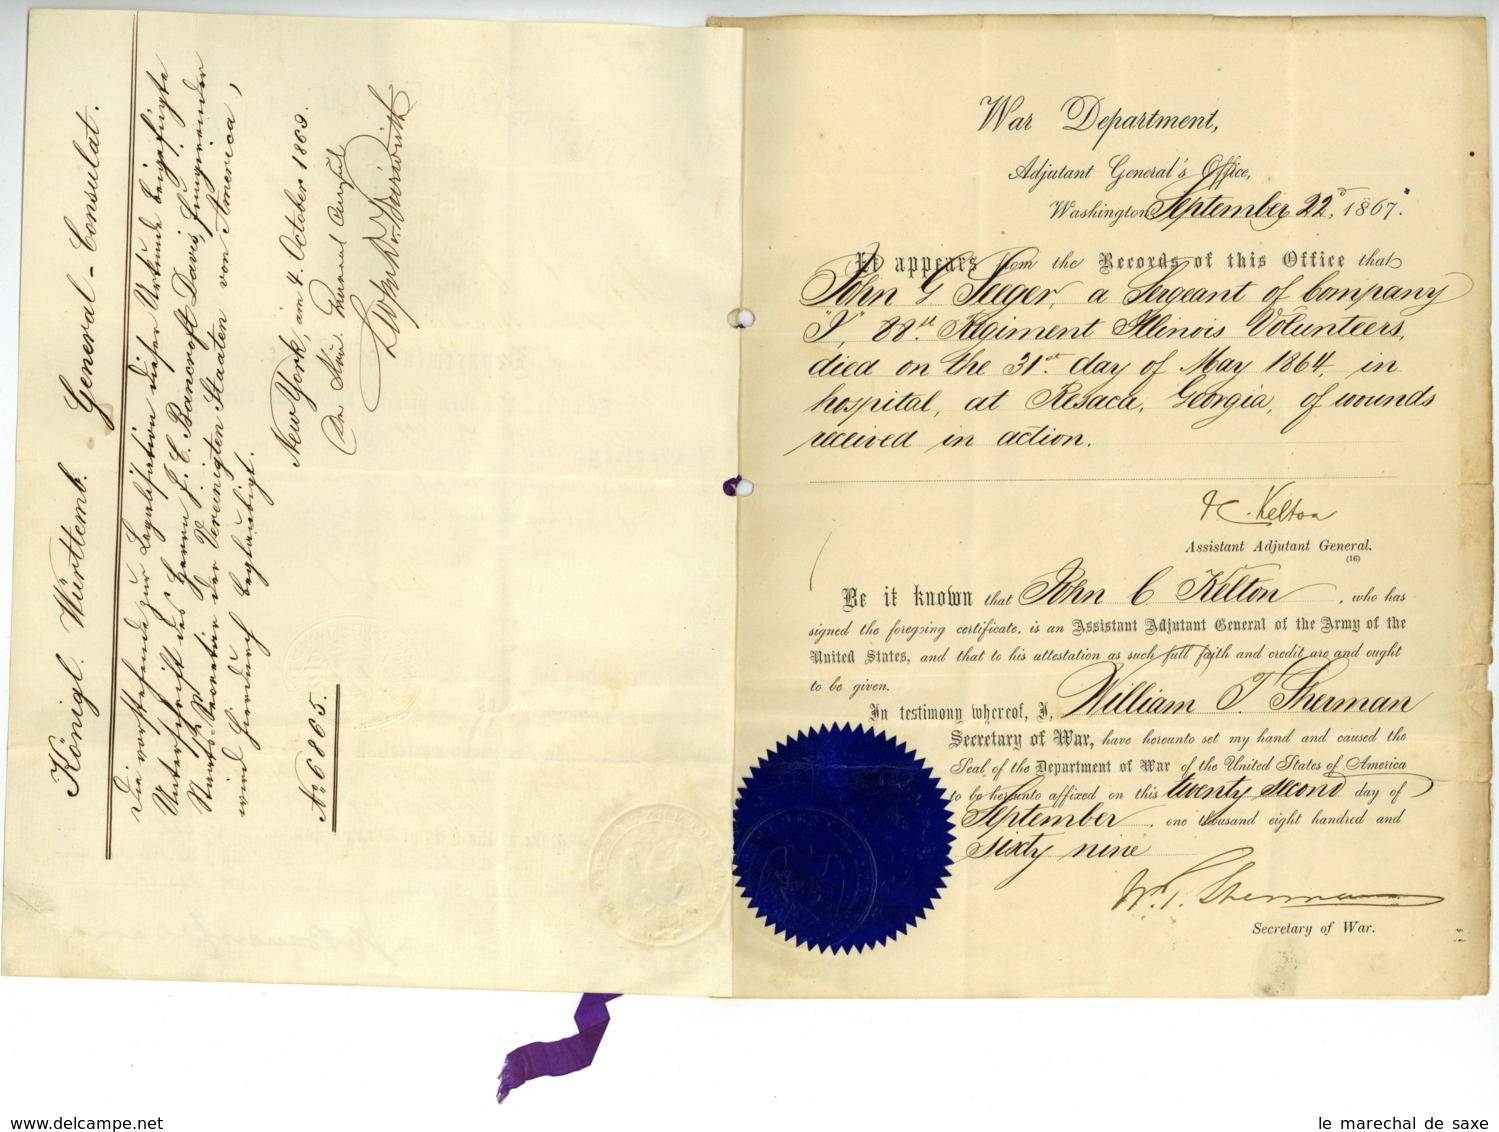 Königl. Württemb. General-Consulat.
Die vorstehende zur Legalisation dieser Urkunde beigefügte
Unterschrift des Herrn J. C. Bancroft Davis, fungirender
Staats-Secretär der Vereinigten Staaten von America,
wird hierdurch beglaubigt.
New York, am 4. October 1869.
Der Kön. General Consul
No 6865.
War Department,
Adjutant General's Office,
Washington September 22d, 1867.
It appears from the Records of this Office that
John G Seeger, a Sergeant of Company
"I", 88th. Regiment Illinois Volunteers,
died on the 31st. day of May 1864 in
hospital, at Resaca, Georgia, of wounds
received in action.
J C. Kelton
Assistant Adjutant General.
(16)
Be it known that John C Kelton, who has
signed the foregoing certificate, is an Assistant Adjutant General of the Army of the
United States, and that to his attestation as such full faith and credit are and ought
to be given.
In testimony whereof, I, William T. Sherman
Secretary of War, have hereunto set my hand and caused the
Seal of the Department of War of the United States of America
to be hereunto affixed on this twenty second day of
September, one thousand eight hundred and
sixty nine
Wm. T. Sherman
Secretary of War.
www.delcampe.net
le marechal de saxe